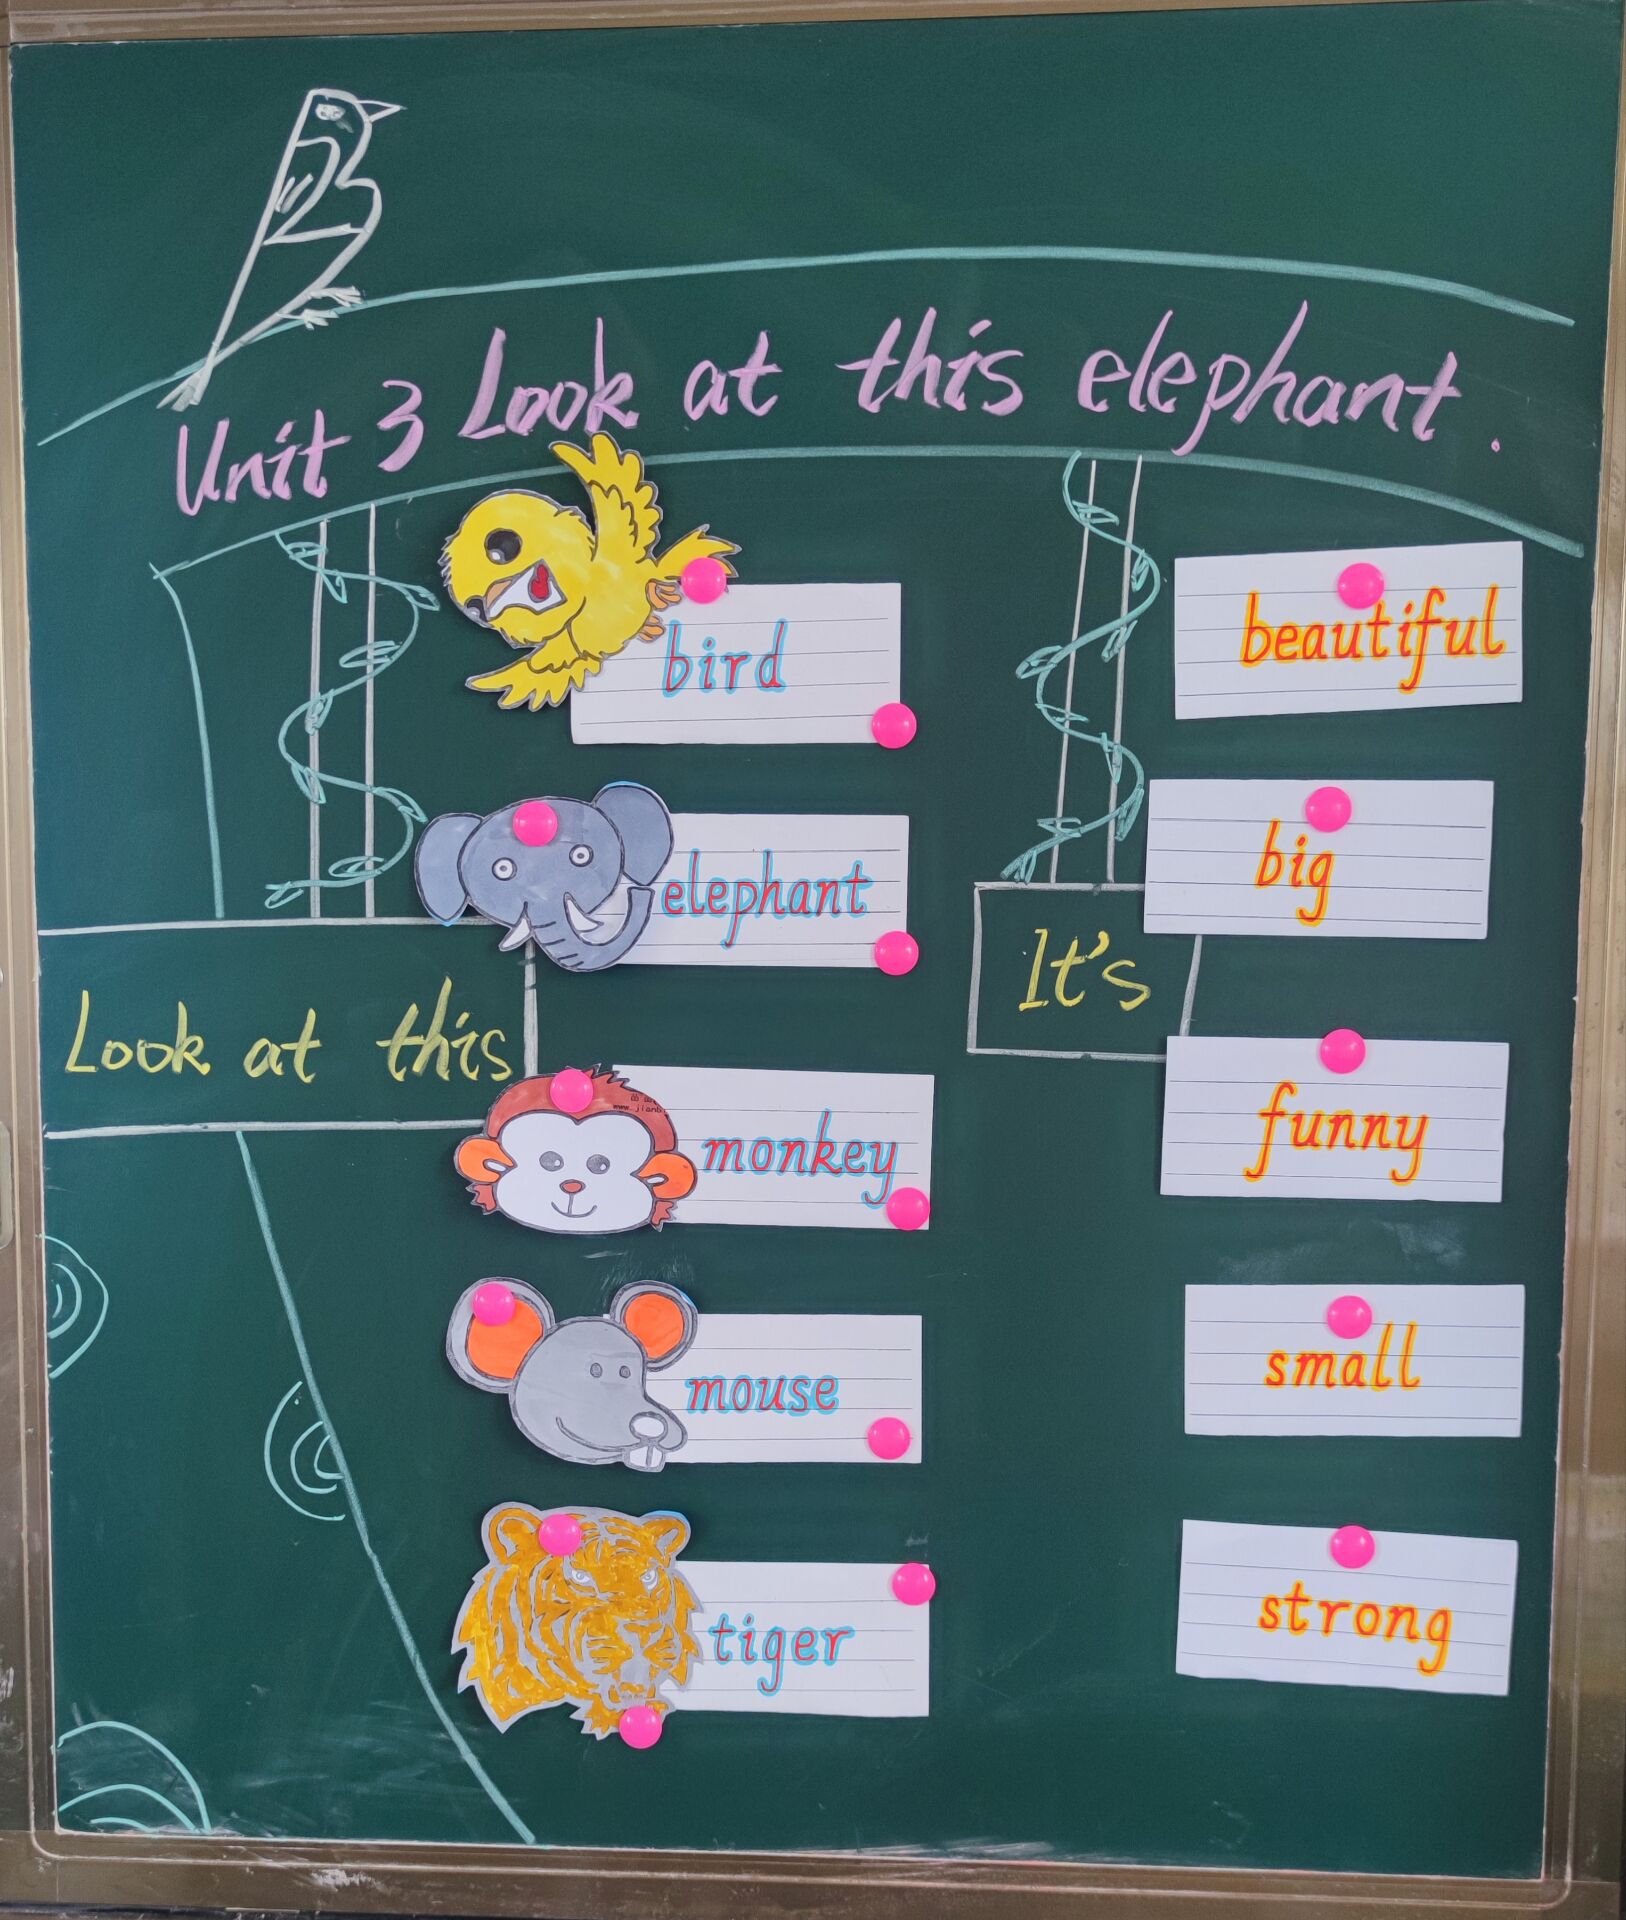 Unit 3 Look at this elephant.
bird
beautiful
elephant
big
Look at this
It's
monkey
funny
mouse
small
tiger
strong